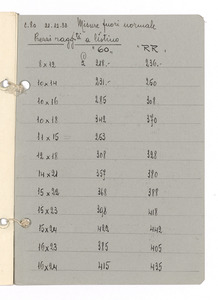 Misure fuori normale
Prezzi ragg.ti a listino
"60" "RR"
8 x 12 218.- 236.-
10 x 14 231.- 250
10 x 16 285 308
10 x 18 342 370
11 x 15 263
12 x 18 308 328
14 x 21 357 380
15 x 22 368 388
15 x 23 398 418
15 x 24 422 442
16 x 23 385 405
16 x 24 415 435